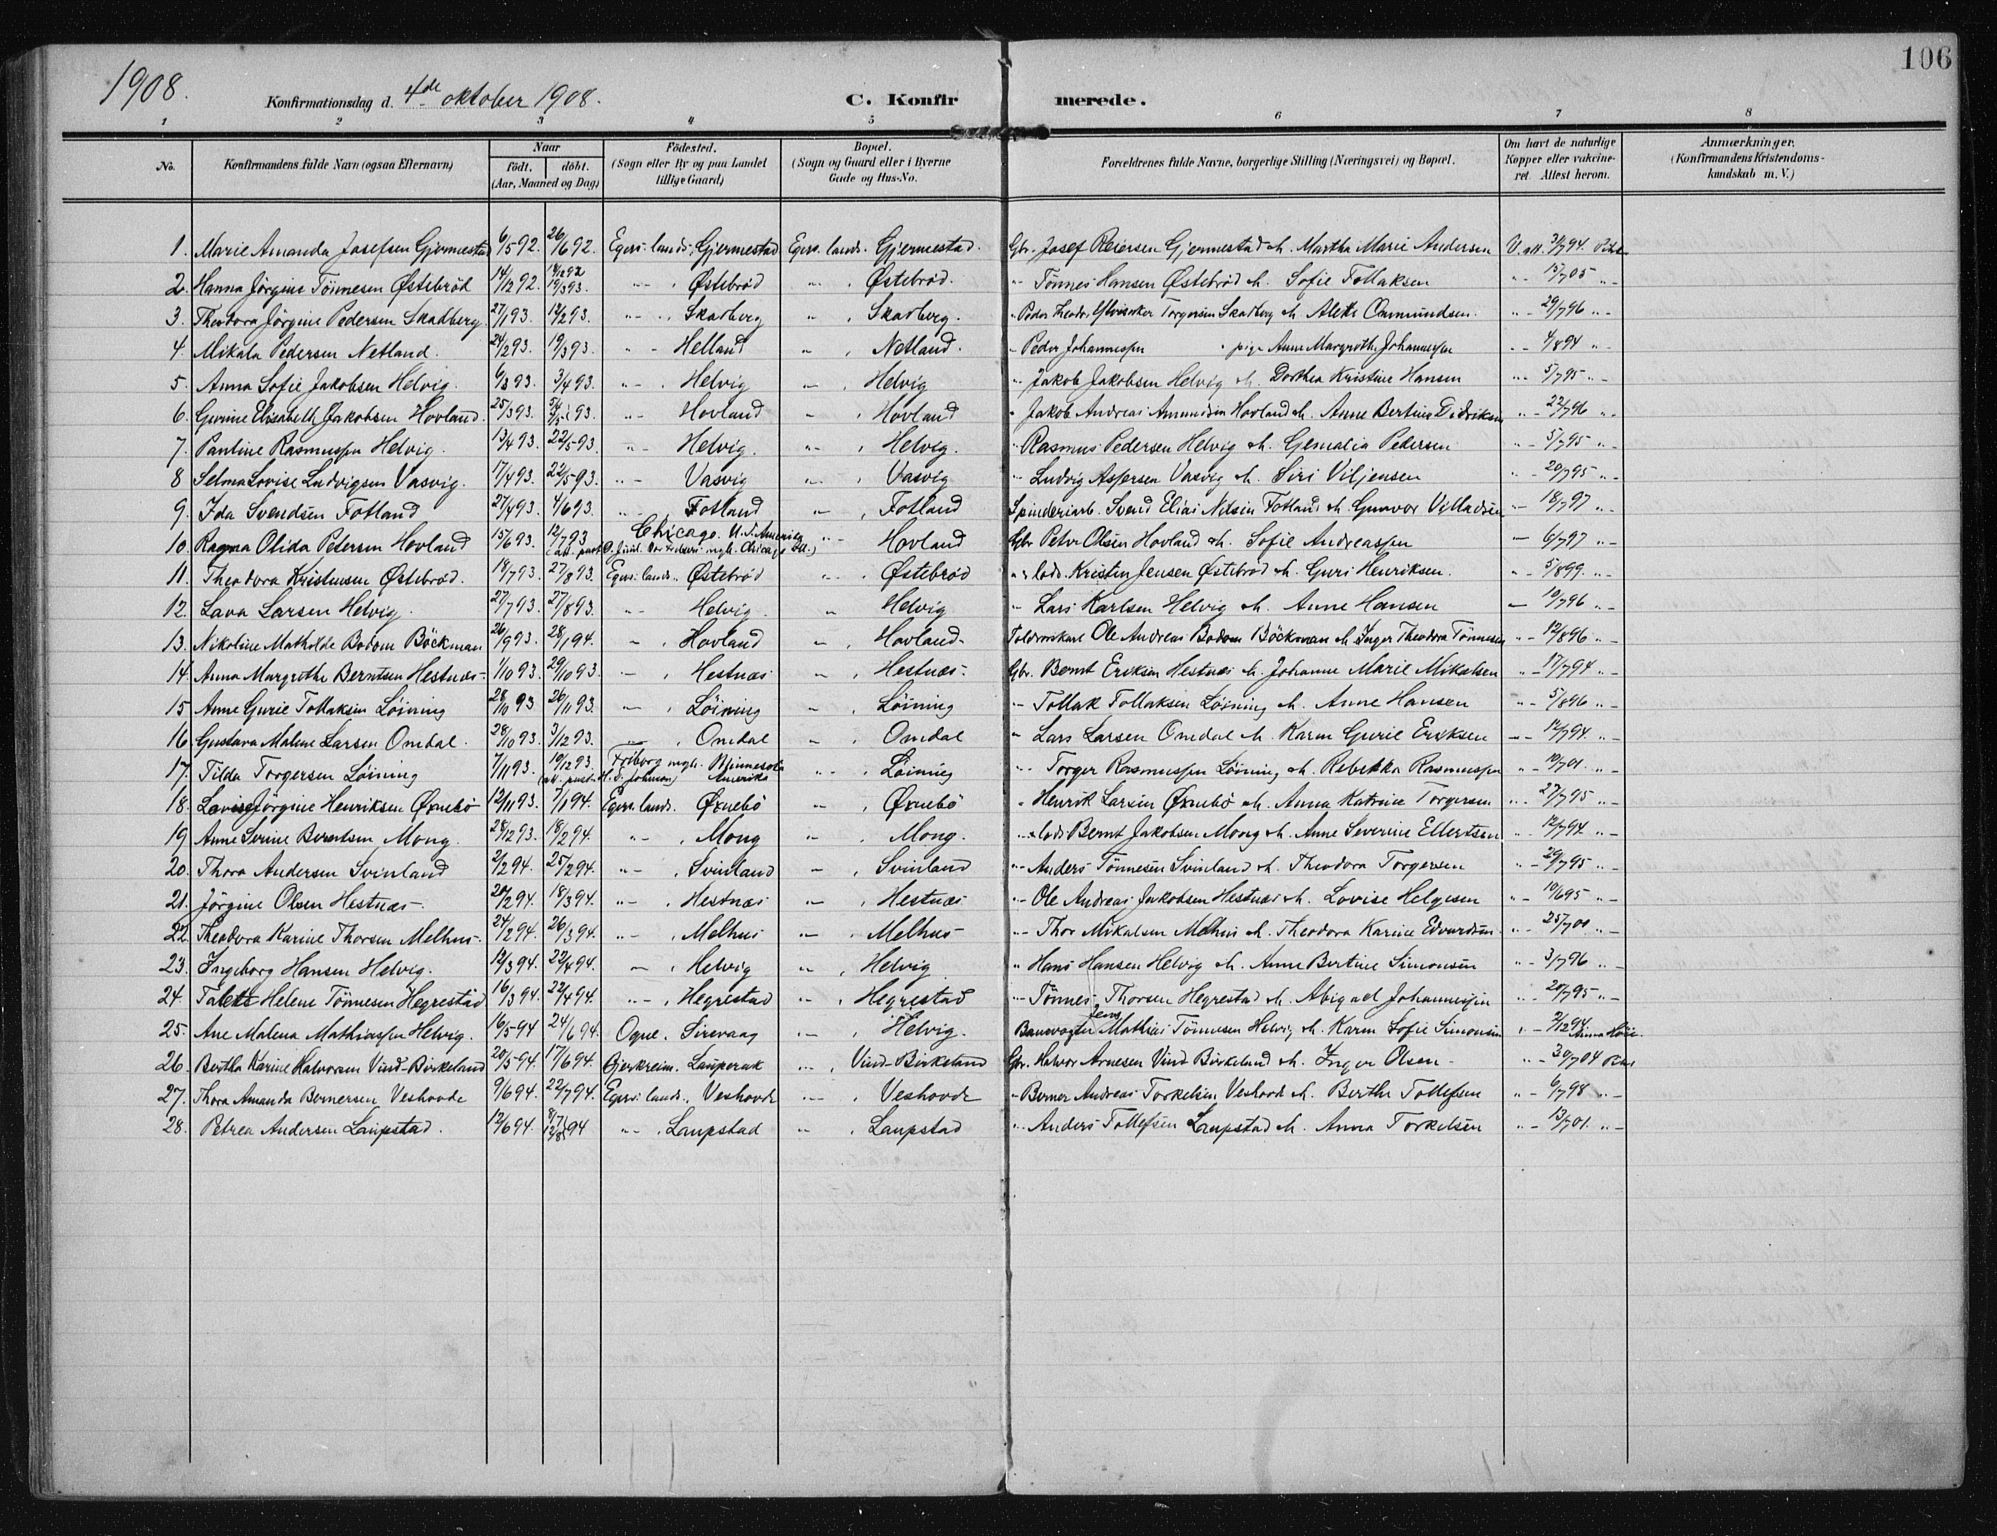 106
1908.
Konfirmationsdag d. 4de oktober 1908. C. Konfirmerede.
1 2 3 4 5 6 7 8
No. Konfirmandens fulde Navn (ogsaa Efternavn) Naar født. døbt. (Aar, Maaned og Dag) Fødested. (Sogn eller By og paa Landet tillige Gaard) Bopæl. (Sogn og Gaard eller i Byerne Gade og Hus-No. Forældrenes fulde Navne, borgerlige Stilling (Næringsvei) og Bopæl. Om havt de naturlige Kopper eller vakcineret. Attest herom. Anmærkninger. (Konfirmandens Kristendomskundskab m. V.)
1. Marie Amanda Josefsen Gjermestad 6/5 92. 26/6 92. Egers. lands. Gjermestad Egers. lands. Gjermestad. Gbr. Josef Reiersen Gjermestad & h. Martha Marie Andersen V. att. 31/7 94
2. Hanna Jørgine Tönnesen Østebröd 14/12 92. 19/3 93. " , Østebröd " , Østebröd. " Tönnes Hansen Østebröd & h. Sofie Tollaksen " 15/7 05 "
3. Theodora Jörgine Pedersen Skadberg. 27/1 93. 12/2 93. " , Skadberg " , Skadberg. " Torgersen Skadberg & h. Alette Omundsen. " 29/7 96 "
4. Mikala Pedersen Netland. 24/2 93. 19/3 93. " Helland " , Netland. " Peder Johannessen " pige Anne Margrethe Johannessen " 4/8 94 "
5. Anna Sofie Jakobsen Helvig. 6/3 93. 3/4 93. " , Helvig " , Helvig " Jakob Jakobsen Helvig & h. Dorthea Kristine Hansen " 5/7 95 "
6. Gurine Elisabeth Jakobsen Hovland. 25/3 93. 93. " , Hovland " , Hovland " Jakob Andreas Amundsen Hovland & h. Anne Bertine Didriksen " 22/7 96 "
7. Pauline Rasmussen Helvig. 13/4 93. 22/5 93. " , Helvig. " , Helvig. " Rasmus Pedersen Helvig & h. Gemalia Pedersen " 5/7 95 "
8 Selma Lovise Ludvigsen Vasvig. 17/4 93. 22/5 93. " , Vasvig " , Vasvig " Ludvig Asjersen Vasvig & h. Siri Viljensen " 20/7 95 "
9. Ida Svendsen Fotland 27/4 93. 4/6 93. " , Fotland " , Fotland Spinderiarb. Svend Elias Nilsen Fotland & h. Gunvor Villadsen " 18/7 97 "
10. Ragna Olida Pedersen Hovland 15/6 93. 12/7 93 Chicago. U. S. Amerika " Hovland Gbr Peter Olsen Hovland & h. Sofie Andreassen " 6/7 97 "
11. Theodora Kristensen Østebröd. 18/7 93. 27/8 93. Egers. lands. Østebröd " , Østebröd " lods. Kristen Jensen Østebröd & h. Guri Henriksen. " 5/8 99. "
12. Lava Larsen Helvig. 27/7 93. 27/8 93. " , Helvig. " Helvig " Lars Karlsen Helvig & h. Anne Hansen " 10/7 96 "
13. Nikoline Mathilde Bodom Böckman 26/9 93. 28/1 94. " , Hovland " , Hovland. Toldronkarl Ole Andreas Bodom Böckman & h. Inger Theodora Tönnesen " 12/8 96 "
14. Anna Margrethe Berntsen Hestnæs. 1/10 93. 29/10 93. " , Hestnæs " , Hestnæs. Gbr. Bernt Eriksen Hestnæs & h. Johanne Marie Mikalsen " 17/7 94 "
15 Anne Gurie Tollaksen Löining 93 26/11 93. " , Löining " , Löining " Tollak Tollaksen Löining & h. Anne Hansen " 5/8 96 "
16. Gustava Malene Larsen Omdal. 28/10 93. 3/12 93. " , Omdal " , Omdal " Lars Larsen Omdal & h. Karen Gurie Eriksen " 12/7 94. "
17. Tilda Torgersen Löining 7/11 93. 10/12 93 Friborg mgh. Minnesota Amerika " , Löining " Torger Rasmussen Löining & h. Rebekka Rasmussen " 10/7 01. "
18. Lovise Jörgine Henriksen Øxnebö 12/11 93. 7/1 94. Egers. lands. Øxnebö " , Øxnebö " Henrik Larsen Øxnebö & h. Anna Katrine Torgersen " 27/7 95 "
19 Anne Serine Berntsen Mong. 28/12 93. 18/2 94. " , Mong " Mong. " lods Bernt Jakobsen Mong & h. Anne Severine Ellertsen " 12/7 94 "
20. Thora Andersen Svinland 2/2 94. 25/2 94. " , Svinland " , Svinland " Anders Tönnesen Svinland & h. Theodora Torgersen " 29/7 95 "
21. Jörgine Olsen Hestnæs. 20/2 94. 18/3 94. " , Hestnæs " , Hestnæs " Ole Andreas Jakobsen Hestnæs & h. Lovise Helgesen " 10/6 95 "
22. Theodora Karine Thorsen Melhus. 24/2 94. 26/3 94. " , Melhus " , Melhus " Thor Mikalsen Melhus & h. Theodora Karine Edvardsen " 25/7 00 "
23. Ingeborg Hansen Helvig. 12/3 94. 22/4 94. " , Helvig " , Helvig " Hans Hansen Helvig & h. Anne Bertine Simonsen " 3/7 96 "
24. Talette Helene Tönnesen Hegrestad 16/3 94. 22/4 94. " , Hegrestad " , Hegrestad " Tönnes Thorsen Hegrestad & h. Abigael Johannessen " 20/7 95 "
25. Ane Malena Mathiassen Helvig. 16/5 94 24/6 94. Ogne. Sirevaag " , Helvig. Banevogter Jens Mathias Tönnesen Helvig & h. Karen Sofie Simonsen " 2/12 94
26. Bertha Karine Halvorsen Vind-Birkeland 20/5 94. 17/6 94. Bjerkreim. Lauperak " , Vind-Birkeland Gbr. Halvor Arnesen Vind Birkeland & h. Inger Olsen " 30/7 04
27. Thora Amanda Bernersen Veshovde 9/6 94. 22/7 94. Egers. lands. Veshovde " Veshovde " Berner Andreas Torkelsen Veshovd & h. Berthe Tollefsen " 6/7 98 "
28. Petrea Andersen Laupstad. 12/6 94. 94 " , Laupstad " , Laupstad " Anders Tollefsen Laupstad & h. Anna Torkelsen " 13/7 01. "